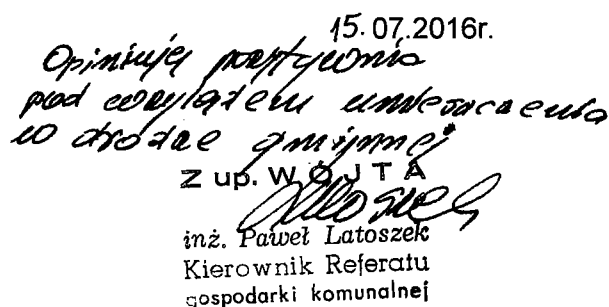 15.07.2016r.
Opiniuję pozytywnie
pod względem umieszczenia
w drodze gminnej
Z up. WÓJTA
Latoszek
inż. Paweł Latoszek
Kierownik Referatu
gospodarki komunalnej